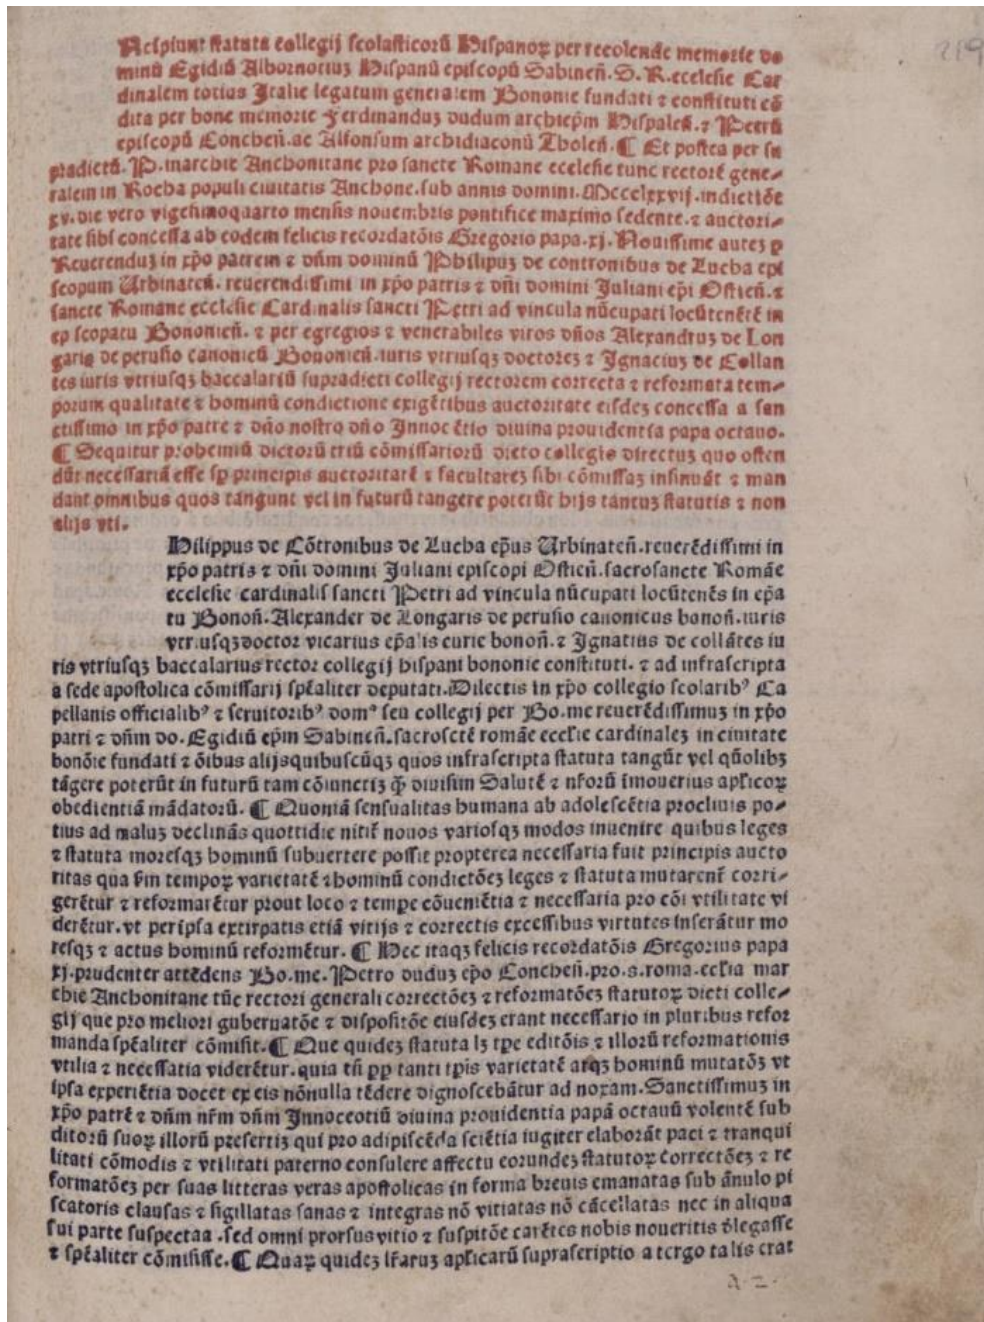 Ncipiunt statuta collegij scolasticorū Hispanoꝝ per recolende memorie do
minū Egidiū Albornotiuȝ Hispanū episcopū Sabineñ. S. R. ecclesie Car
dinalem totius Italie legatum generalem Bononie fundati ⁊ constituti cō
dita per bone memorie Ferdinanduȝ dudum archiep̄m Hispaleñ. ⁊ Petrū
episcopū Concheñ. ac Alfonsum archidiaconū Tholeñ. ¶ Et postea per su
pradictū. P. marchie Anchonitane pro sancte Romane ecclesie tunc rectorē gene⸗
ralem in Rocha populi ciuitatis Anchone. sub annis domini. Mccclxxvij. indictiōe
xv. die vero vigesimoquarto mensis nouembris pontifice maximo sedente. ⁊ auctori⸗
tate sibi concessa ab eodem felicis recordatōis Gregorio papa. xj. Nouissime auteȝ ꝑ
Reuerenduȝ in xp̄o patrem ⁊ dn̄m dominū Philipuȝ de contronibus de Lucha epi
scopum Urbinateñ. reuerendissimi in xp̄o patris ⁊ dn̄i domini Juliani ep̄i Ostieñ. ⁊
sancte Romane ecclesie Cardinalis sancti Petri ad vincula nūcupati locūtenētē in
ep scopatu Bononieñ. ⁊ per egregios ⁊ venerabiles viros dn̄os Alexandruȝ de Lon
garis de perusio canonicū Bononieñ. iuris vtriusqȝ doctoreȝ ⁊ Ignaciuȝ de Collan
tes iuris vtriusqȝ baccalariū supradicti collegij rectorem correcta ⁊ reformata tem⸗
porum qualitate ⁊ hominū condictione exigētibus auctoritate eisdeȝ concessa a san
ctissimo in xp̄o patre ⁊ dn̄o nostro dn̄o Innocētio diuina prouidentia papa octauo.
¶ Sequitur prohemiū dictorū triū cōmissariorū dicto collegio directus quo osten
dūt necessariā esse sp̄ principis auctoritatē ⁊ facultateȝ sibi cōmissaȝ insinuāt ⁊ man
dant omnibus quos tangunt vel in futurū tangere poterūt hijs tantuȝ statutis ⁊ non
alijs vti.
Hilippus de Cōtronibus de Lucha ep̄us Urbinateñ. reuerēdissimi in
xp̄o patris ⁊ dn̄i domini Juliani episcopi Ostieñ. sacrosancte Romāe
ecclesie cardinalis sancti Petri ad vincula nūcupati locūtenēs in ep̄a
tu Bonoñ. Alexander de Longaris de perusio canonicus bonoñ. iuris
vtriusqȝ doctor vicarius ep̄alis curie bonoñ. ⁊ Ignatius de collātes iu
ris vtriusqȝ baccalarius rector collegij hispani bononie constituti. ⁊ ad infrascripta
a sede apostolica cōmissarij sp̄aliter deputati. Dilectis in xp̄o collegio scolarib⁹ Ca
pellanis officialib⁹ ⁊ seruitorib⁹ domᵒ seu collegij per Bo. me reuerēdissimuȝ in xp̄o
patri ⁊ dn̄m do. Egidiū ep̄m Sabineñ. sacrosctē romāe eccl'ie cardinaleȝ in ciuitate
bonōie fundati ⁊ ōibus alijsquibuscūqȝ quos infrascripta statuta tangūt vel qūolibȝ
tāgere poterūt in futurū tam cōiunctiȝ ꝙ̄ diuisim Salutē ⁊ nr̄orū imouerius ap̄licoꝝ
obedientiā mādatorū. ¶ Quoniā sensualitas humana ab adolescētia procliuis po⸗
tius ad maluȝ declinās quottidie nitit̄ nouos variosqȝ modos inuenire quibus leges
⁊ statuta moresqȝ hominū subuertere possit propterea necessaria fuit principis aucto
ritas qua ẜm tempoꝝ varietatē ⁊ hominū condictōeȝ leges ⁊ statuta mutarent̄ corri⸗
gerētur ⁊ reformarētur prout loco ⁊ tempe cōueniētia ⁊ necessaria pro cōi vtilitate vi
derētur. vt per ipsa extirpatis etiā vitijs ⁊ correctis excessibus virtutes inserātur mo
resqȝ ⁊ actus hominū reformētur. ¶ Hec itaqȝ felicis recordatōis Gregorius papa
xj. prudenter attēdens Bo. me. Petro duduȝ ep̄o Concheñ. pro. s. roma. eccl'ia mar
chie Anchonitane tūc rectori generali correctōeȝ ⁊ reformatōeȝ statutoꝝ dicti colle⸗
gij que pro meliori gubernatōe ⁊ dispositōe eiusdeȝ erant necessario in pluribus refor
manda sp̄aliter cōmisit. ¶ Que quideȝ statuta lȝ tp̄e editōis ⁊ illorū reformationis
vtilia ⁊ necessatia viderētur. quia tn̄ pp̄ tanti tp̄is varietatē atqȝ hominū mutatōȝ vt
ipsa experiētia docet ex eis nōnulla tēdere dignoscebātur ad noxam. Sanctissimuȝ in
xp̄o patrē ⁊ dn̄m nr̄m dn̄m Innoceotiū diuina prouidentia papā octauū volentē sub
ditorū suoꝝ illorū presertiȝ qui pro adipiscēda sciētia iugiter elaborāt paci ⁊ tranqui
litati cōmodis ⁊ vtilitati paterno consulere affectu eorundeȝ statutoꝝ correctōeȝ ⁊ re
formatōeȝ per suas litteras veras apostolicas in forma breuis emanatas sub ānulo pi
scatoris clausas ⁊ sigillatas sanas ⁊ integras nō vitiatas nō cācellatas nec in aliqua
sui parte suspectaa . sed omni prorsus vitio ⁊ suspitōe carētes nobis noueritis d'legasse
⁊ sp̄aliter cōmisisse. ¶ Quaꝝ quideȝ lr̄aruȝ ap̄licarū suprascriptio a tergo talis erat
a. 2.
219